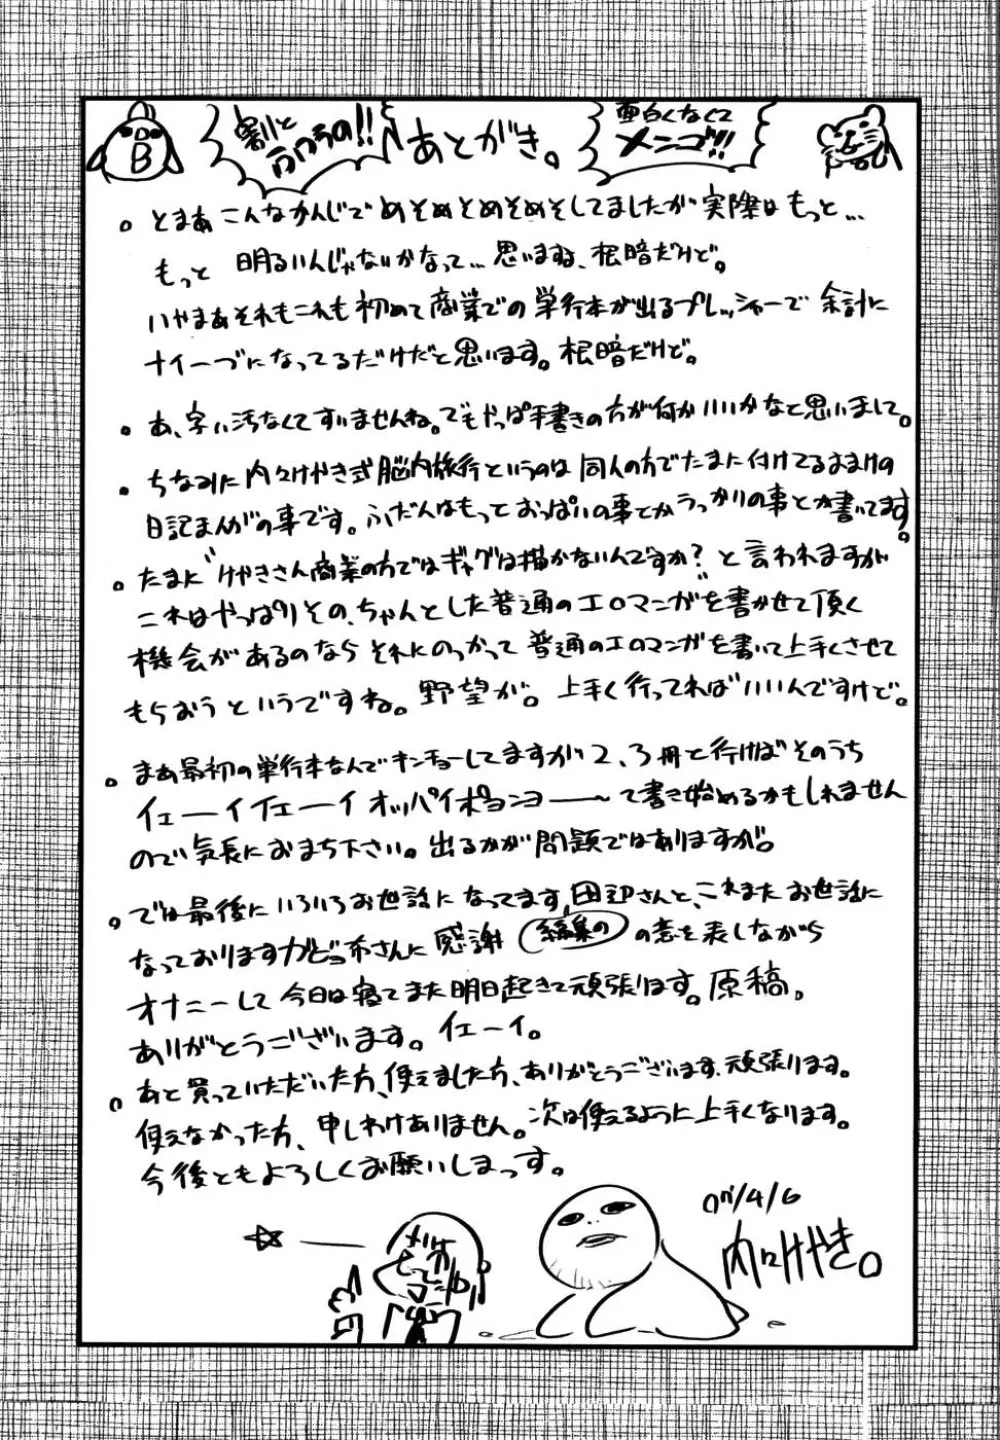 割とうつうつの!!
あとがき。
面白くなくて
メンゴ!!!
B
。とまあ こんなかんじで めそめそめそめそしてましたが 実際は もっと…
もっと 明るいんじゃないかなって… 思いますね、根暗だけど。
いやまあそれもこれも 初めて 商業での 単行本が出るプレッシャーで 余計に
ナイーブになってるだけだと思います。根暗だけど。
。あ、字い汚なくてすいませんね。でもやっぱ手書きの方が何かいいかなと思いまして。
。ちなみに内々けやき式脳内旅行というのは 同人の方でたまに付けてるおまけの
日記まんがの事です。ふだんはもっと おっぱいの事とかうっかりの事とか書いてます。
。たまに“けやきさん商業の方ではギャグは描かないんですか?”と 言われますが
これはやっぱりその、ちゃんとした普通のエロマンガを書かせて頂く
機会があるのなら それにのっかって 普通のエロマンガを書いて上手くさせて
もらおう というですね。野望が。上手く行ってればいいんですけど。
。まあ最初の単行本なんでキンチョーしてますが 2、3冊と行けば そのうち
イェーイイェーイ オッパイポヨンヨ――〜て書き始めるかもしれません
ので 気長に おまち下さい。出るかが問題ではありますが。
。では最後に いろいろお世話に なってます 田辺さんと、これまた お世話に
なっておりますガビョ布さんに 感謝 (編集の) の意を表しながら
オナニーして 今日は寝てまた明日起きて頑張ります。原稿。
ありがとうございます。イェーイ。
。あと 買っていただいた方、使えました方、ありがとうございます、頑張ります。
使えなかった方、申しわけありません。次は使えるように上手くなります。
今後ともよろしくお願いしまっす。
07/4/6
内々けやき。